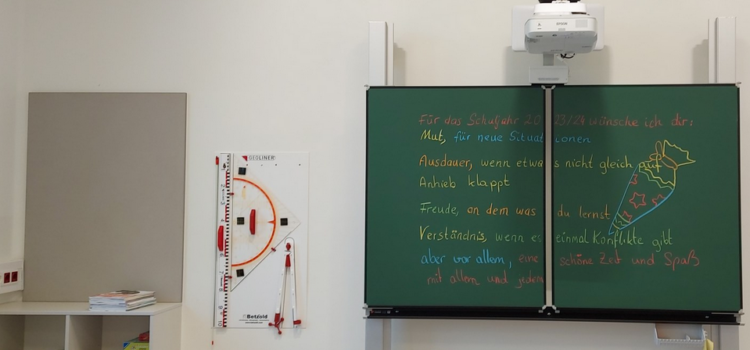 GEOLINER
Betzold
EPSON
Für das Schuljahr 2023/24 wünsche ich dir:
Mut, für neue Situationen
Ausdauer, wenn etwas nicht gleich auf
Anhieb klappt
Freude, an dem was du lernst
Verständnis, wenn es einmal Konflikte gibt
aber vor allem, eine schöne Zeit und Spaß
mit allem und jedem